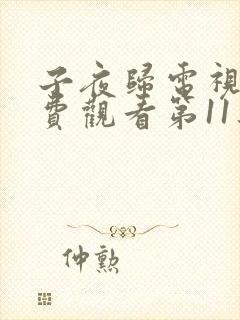 子夜歸電視
費觀看第11
仲勲